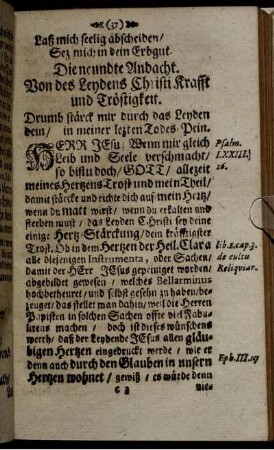 (37)
Laß mich seelig abscheiden/
Sez mich in dein Erbgut.
Die neundte Andacht.
Von des Leydens Christi Krafft
und Tröstigkeit.
Drumb stärck mir durch das Leyden
dein/ in meiner lezten Todes-Pein.
HERR JEsu/ Wenn mir gleich
Leib und Seele verschmacht/
so bistu doch/ GOTT/ allezeit
meines Hertzens Trost und mein Theil/
damit stärcke und richte dich auf/ mein Hertz/
wenn du matt wirst/ wenn du erkalten und
sterben must/ das Leyden Christi sey deine
einige Hertz-Stärckung/ dein kräfftigster
Trost. Ob in dem Hertzen der Heil. Clara
alle diejenigen Instrumenta, oder Sachen/
damit der HErr JEsus gepeiniget worden/
abgebildet gewesen/ welches Bellarminus
hochbetheuret/ und selbst gesehn zu haben/ be-
zeuget/ das stellet man dahin/ weil die Herren
Papisten in solchen Sachen offte viel Fabu-
lirens machen/ doch ist dieses wünschens
werth/ daß der Leydende JEsus allen gläu-
bigen Hertzen eingedruckt werde/ wie er
denn auch durch den Glauben in unsern
Hertzen wohnet/ gewiß/ es würde denn
C 3
nie-
Psalm.
LXXIII.
26.
lib. 2. cap. 3.
de cultu
Reliquiar.
Eph. III. 17